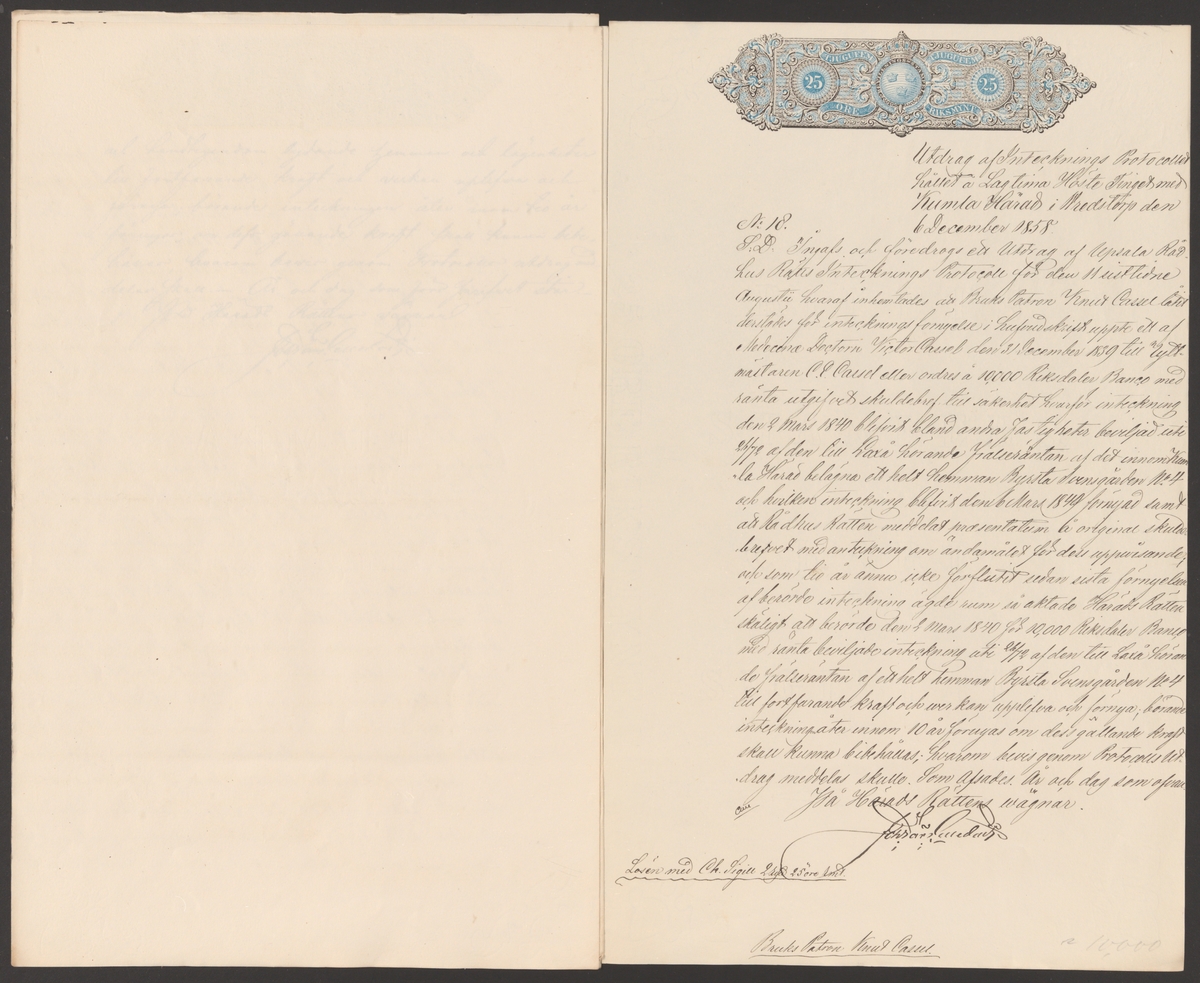 TJUGUFEM TJUGUFEM
25 25
ÖRE RIKSMYNT
Utdrag af Intecknings Protocollet
hållet å Lagtima Höste Tinget med
Kumla Härad i Wredstorp den
6 December 1858.
N: 18.
S.D. Ingafs och föredrogs ett Utdrag af Upsala Råd-
hus Rätts Intecknings Protocoll för den 11 sistlidne
Augusti hvaraf inhemtades att Bruks Patron Knut Cassel låtit
derstädes för inteckningsförnyelse i hufvudskrift uppte ett af
Medecinæ Doctorn Victor Cassel den 31 December 1839 till Rytt-
mästaren C. E. Cassel eller ordres à 10,000 Riksdaler Banco med
ränta utgifvet skuldebref till säkerhet hvarför inteckning
den 2 Mars 1840 blifvit bland andra fastigheter beviljad uti
24/72 af den till Laxå hörande Frälseräntan af det innom Kum-
la Härad belägna ett helt hemman Byrsta Svensgården No 4
och hvilken inteckning blifvit den 6 Mars 1849 förnyad samt
att Rådhus Rätten meddelat præsentatum å original skulde-
brefvet med anteckning om ändamålet för dess uppvisande;
och som tio år ännu icke förflutit sedan sista förnyelsen
af berörde inteckning ägde rum så aktade Härads Rätten
skäligt att berörde den 2 Mars 1840 för 10,000 Riksdaler Banco
med ränta beviljade inteckning uti 24/72 af den till Laxå höran-
de Frälseräntan af ett helt hemman Byrsta Svensgården No 4
till fortfarande kraft och werkan upplifva och förnya; börande
inteckning åter innom 10 år förnyas om dess gällande kraft
skall kunna bibehållas; hvarom bevis genom Protocolls Ut-
drag meddelas skulle. Som Afsades. År och dag som ofvan
På Härads Rättens wägnar.
Lösen med Ch. Sigill 2 rd 25 öre Rmt.
Bruks Patron Knut Cassel.
10,000